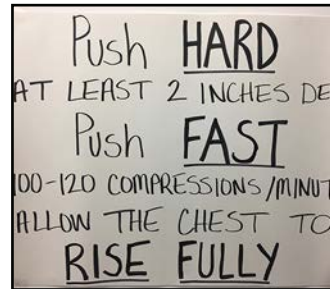 Push HARD
AT LEAST 2 INCHES DE
Push FAST
100-120 COMPRESSIONS/MINUT
ALLOW THE CHEST TO
RISE FULLY